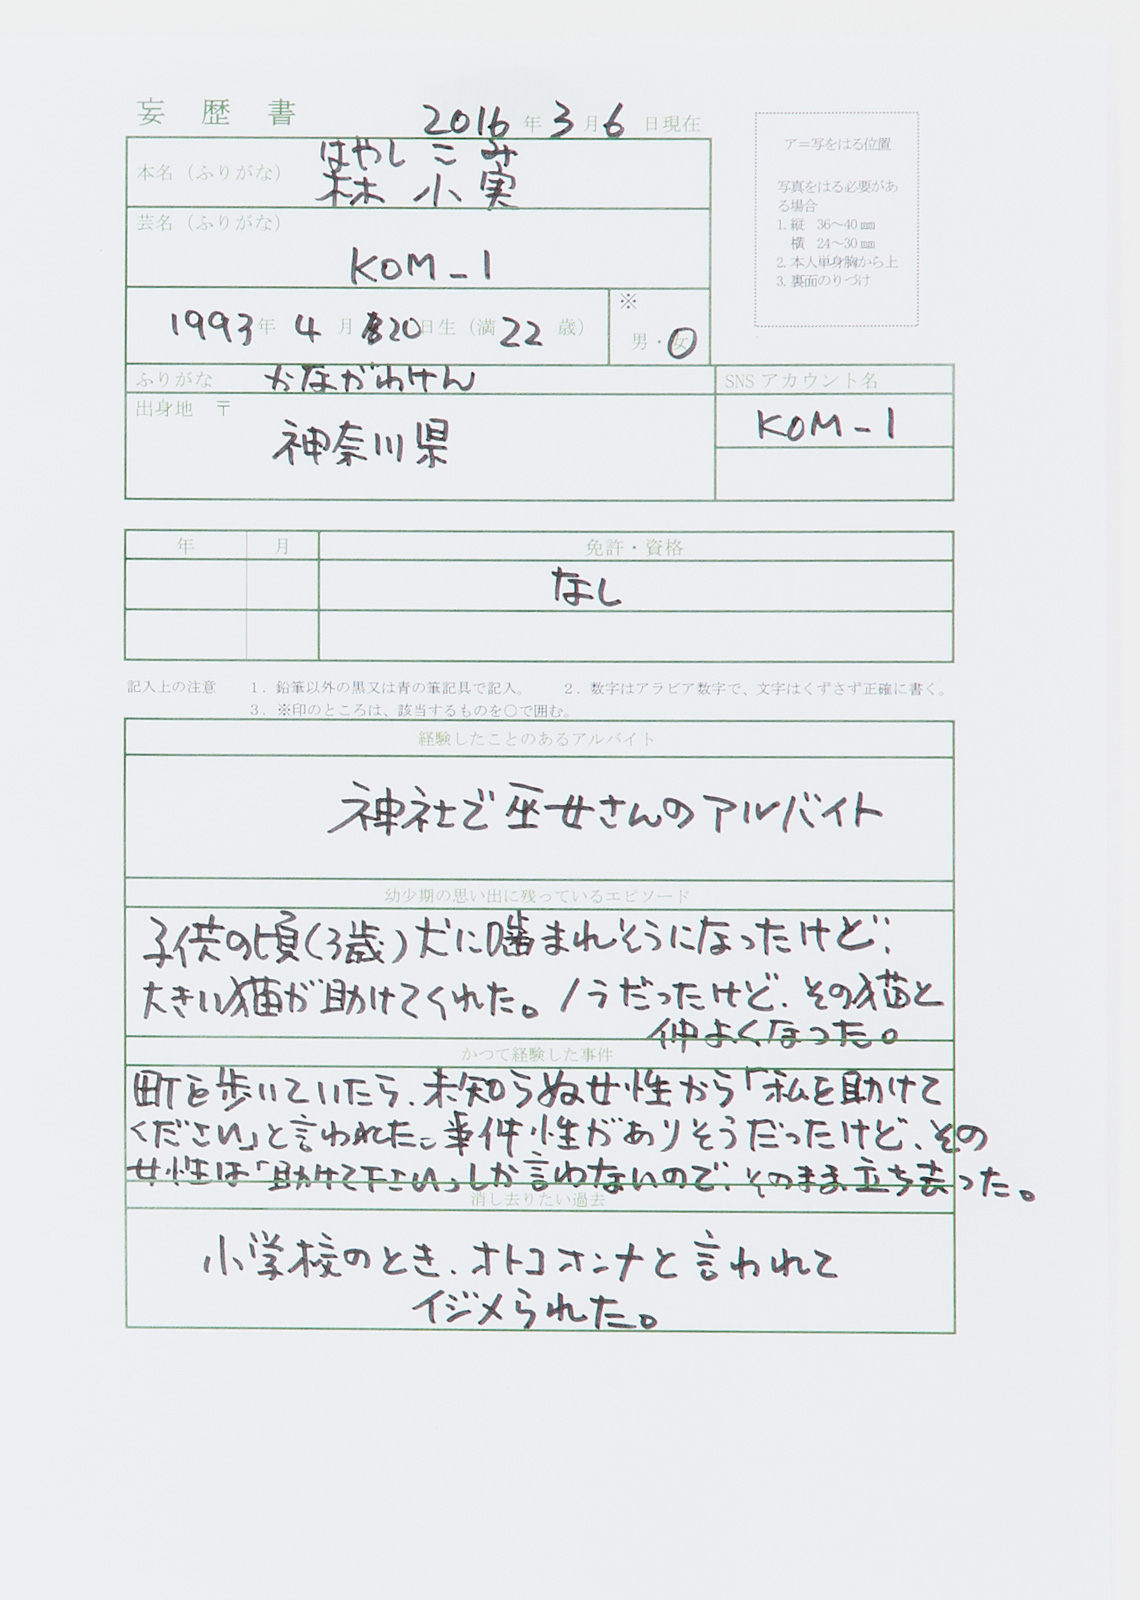 妄歴書
2016年3月6日現在
ア=写をはる位置
写真をはる必要があ
る場合
1.縦 36〜40㎜
横 24〜30㎜
2.本人単身胸から上
3.裏面のりづけ
はやし こみ
本名（ふりがな）
林 小実
芸名（ふりがな）
KOM_I
1993年 4月 20日生（満22歳）
※
男・女
ふりがな かながわけん
出身地 〒
神奈川県
SNSアカウント名
KOM_I
年 月 免許・資格
なし
記入上の注意 1．鉛筆以外の黒又は青の筆記具で記入。 2．数字はアラビア数字で、文字はくずさず正確に書く。
3．※印のところは、該当するものを○で囲む。
経験したことのあるアルバイト
神社で巫女さんのアルバイト
幼少期の思い出に残っているエピソード
子供の頃(3歳)犬に噛まれそうになったけど、
大きい猫が助けてくれた。ノラだったけど、その猫と
仲よくなった。
かつて経験した事件
町を歩いていたら、未知らぬ女性から「私を助けて
ください」と言われた。事件性がありそうだったけど、その
女性は「助けて下さい」しか言わないので、そのまま立ち去った。
消し去りたい過去
小学校のとき、オトコオンナと言われて
イジメられた。